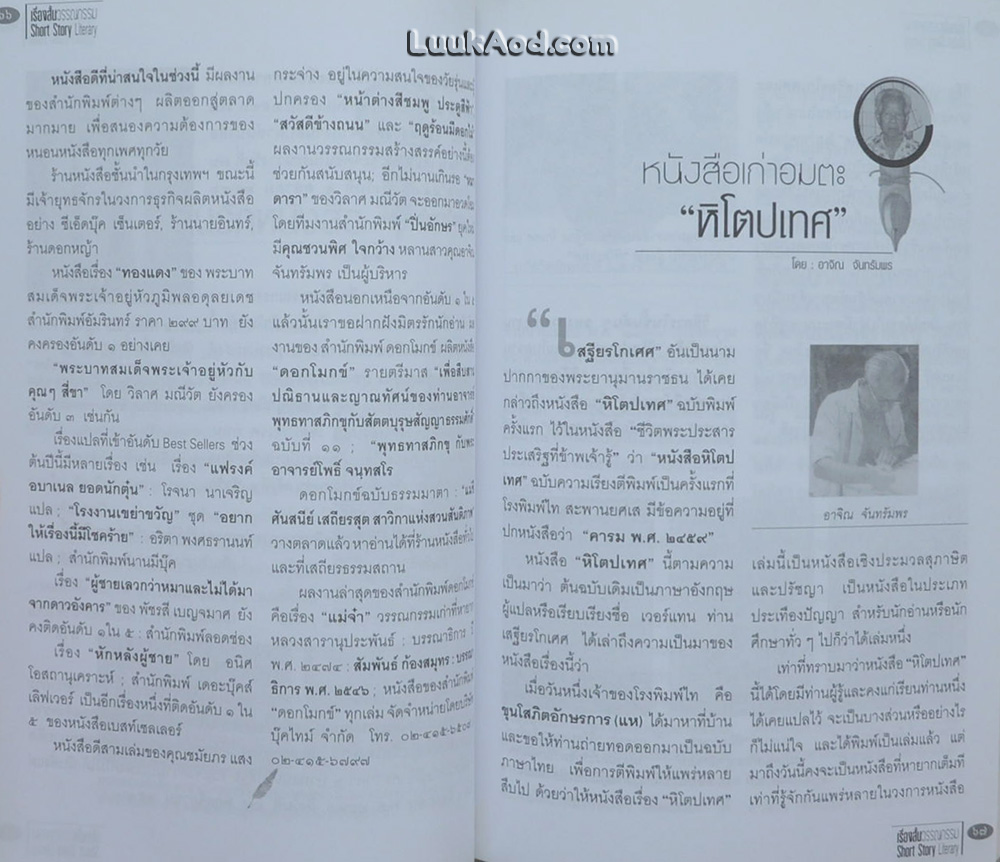 LuukAod.com
๖๖
เรื่องสั้นวรรณกรรม
Short Story Literary
หนังสือดีที่น่าสนใจในช่วงนี้ มีผลงาน
ของสำนักพิมพ์ต่างๆ ผลิตออกสู่ตลาด
มากมาย เพื่อสนองความต้องการของ
หนอนหนังสือทุกเพศทุกวัย
ร้านหนังสือชั้นนำในกรุงเทพฯ ขณะนี้
มีเจ้ายุทธจักรในวงการธุรกิจผลิตหนังสือ
อย่าง ซีเอ็ดบุ๊ค เซ็นเตอร์, ร้านนายอินทร์,
ร้านดอกหญ้า
หนังสือเรื่อง “ทองแดง” ของ พระบาท
สมเด็จพระเจ้าอยู่หัวภูมิพลอดุลยเดช
สำนักพิมพ์อัมรินทร์ ราคา ๒๙๙ บาท ยัง
คงครองอันดับ ๑ อย่างเคย
“พระบาทสมเด็จพระเจ้าอยู่หัวกับ
คุณๆ สี่ขา” โดย วิลาศ มณีวัต ยังครอง
อันดับ ๓ เช่นกัน
เรื่องแปลที่เข้าอันดับ Best Sellers ช่วง
ต้นปีนี้มีหลายเรื่อง เช่น เรื่อง “แฟรงค์
อบาเนล ยอดนักตุ๋น” : โรจนา นาเจริญ
แปล ; “โรงงานเขย่าขวัญ” ชุด “อยาก
ให้เรื่องนี้มีโชคร้าย” : อริตา พงศธรานนท์
แปล ; สำนักพิมพ์นานมีบุ๊ค
เรื่อง “ผู้ชายเลวกว่าหมาและไม่ได้มา
จากดาวอังคาร” ของ พัชรสี เบญจมาศ ยัง
คงติดอันดับ ๑ใน ๕ : สำนักพิมพ์ลอดช่อง
เรื่อง “หักหลังผู้ชาย” โดย อนิศ
โอสถานุเคราะห์ ; สำนักพิมพ์ เดอะบุ๊คส์
เลิฟเวอร์ เป็นอีกเรื่องหนึ่งที่ติดอันดับ ๑ ใน
๕ ของหนังสือเบสท์เซลเลอร์
หนังสือดีสามเล่มของคุณชมัยภร แสง
กระจ่าง อยู่ในความสนใจของวัยรุ่นและ
ปกครอง “หน้าต่างสีชมพู ประตูสีฟ้า
“สวัสดีข้างถนน” และ “ฤดูร้อนมีดอกไม้
ผลงานวรรณกรรมสร้างสรรค์อย่างนี้ต้อง
ช่วยกันสนับสนุน; อีกไม่นานเกินรอ
ดารา” ของวิลาศ มณีวัต จะออกมาอวดโฉม
โดยทีมงานสำนักพิมพ์ “ปิ่นอักษร”
มีคุณชวนพิศ ใจกว้าง หลานสาวคุณอาจิณ
จันทรัมพร เป็นผู้บริหาร
หนังสือนอกเหนือจากอันดับ ๑ ใน ๕
แล้วนั้นเราขอฝากฝังมิตรรักนักอ่าน
งานของ สำนักพิมพ์ ดอกโมกข์ ผลิตหนังสือ
“ดอกโมกข์” รายตรีมาส “เพื่อสืบสาน
ปณิธานและญาณทัศน์ของท่านอาจารย์
พุทธทาสภิกขุกับสัตตบุรุษสัญญาธรรมศักดิ์
ฉบับที่ ๑๑ ; “พุทธทาสภิกขุ กับพระ
อาจารย์โพธิ์ จนฺทสโร
ดอกโมกข์ฉบับธรรมมาตา : “แม่ชี
ศันสนีย์ เสถียรสุต สาวิกาแห่งสวนสันติภาพ
วางตลาดแล้ว หาอ่านได้ที่ร้านหนังสือทั่วไป
และที่เสถียรธรรมสถาน
ผลงานล่าสุดของสำนักพิมพ์ดอกโมกข์
คือเรื่อง “แม่จ๋า” วรรณกรรมเก่าที่หายาก
หลวงสารานุประพันธ์ : บรรณาธิการ
พ.ศ. ๒๔๗๔ : สัมพันธ์ ก้องสมุทร : บรรณา
ธิการ พ.ศ. ๒๕๔๖ ; หนังสือของสำนักพิมพ์
“ดอกโมกข์” ทุกเล่ม จัดจำหน่ายโดยบริษัท
บุ๊คไทม์ จำกัด โทร. ๐๒-๔๑๕-๖๕๐๗
๐๒-๔๑๕-๖๗๙๗
หนังสือเก่าอมตะ
“หิโตปเทศ”
โดย : อาจิณ จันทรัมพร
“เสฐียรโกเศศ” อันเป็นนาม
ปากกาของพระยานุมานราชธน ได้เคย
กล่าวถึงหนังสือ “หิโตปเทศ” ฉบับพิมพ์
ครั้งแรก ไว้ในหนังสือ “ชีวิตพระประสาร
ประเสริฐที่ข้าพเจ้ารู้” ว่า “หนังสือหิโตป
เทศ” ฉบับความเรียงตีพิมพ์เป็นครั้งแรกที่
โรงพิมพ์ไท สะพานยศเส มีข้อความอยู่ที่
ปกหนังสือว่า “คารม พ.ศ. ๒๔๕๙”
หนังสือ “หิโตปเทศ” นี้ตามความ
เป็นมาว่า ต้นฉบับเดิมเป็นภาษาอังกฤษ
ผู้แปลหรือเรียบเรียงชื่อ เวอร์แทน ท่าน
เสฐียรโกเศศ ได้เล่าถึงความเป็นมาของ
หนังสือเรื่องนี้ว่า
เมื่อวันหนึ่งเจ้าของโรงพิมพ์ไท คือ
ขุนโสภิตอักษรการ (แห) ได้มาหาที่บ้าน
และขอให้ท่านถ่ายทอดออกมาเป็นฉบับ
ภาษาไทย เพื่อการตีพิมพ์ให้แพร่หลาย
สืบไป ด้วยว่าให้หนังสือเรื่อง “หิโตปเทศ”
อาจิณ จันทรัมพร
เล่มนี้เป็นหนังสือเชิงประมวลสุภาษิต
และปรัชญา เป็นหนังสือในประเภท
ประเทืองปัญญา สำหรับนักอ่านหรือนัก
ศึกษาทั่ว ๆ ไปก็ว่าได้เล่มหนึ่ง
เท่าที่ทราบมาว่าหนังสือ “หิโตปเทศ”
นี้ได้โดยมีท่านผู้รู้และคงแก่เรียนท่านหนึ่ง
ได้เคยแปลไว้ จะเป็นบางส่วนหรืออย่างไร
ก็ไม่แน่ใจ และได้พิมพ์เป็นเล่มแล้ว แต่
มาถึงวันนี้คงจะเป็นหนังสือที่หายากเต็มที
เท่าที่รู้จักกันแพร่หลายในวงการหนังสือ
เรื่องสั้นวรรณกรรม
Short Story Literary
๖๗